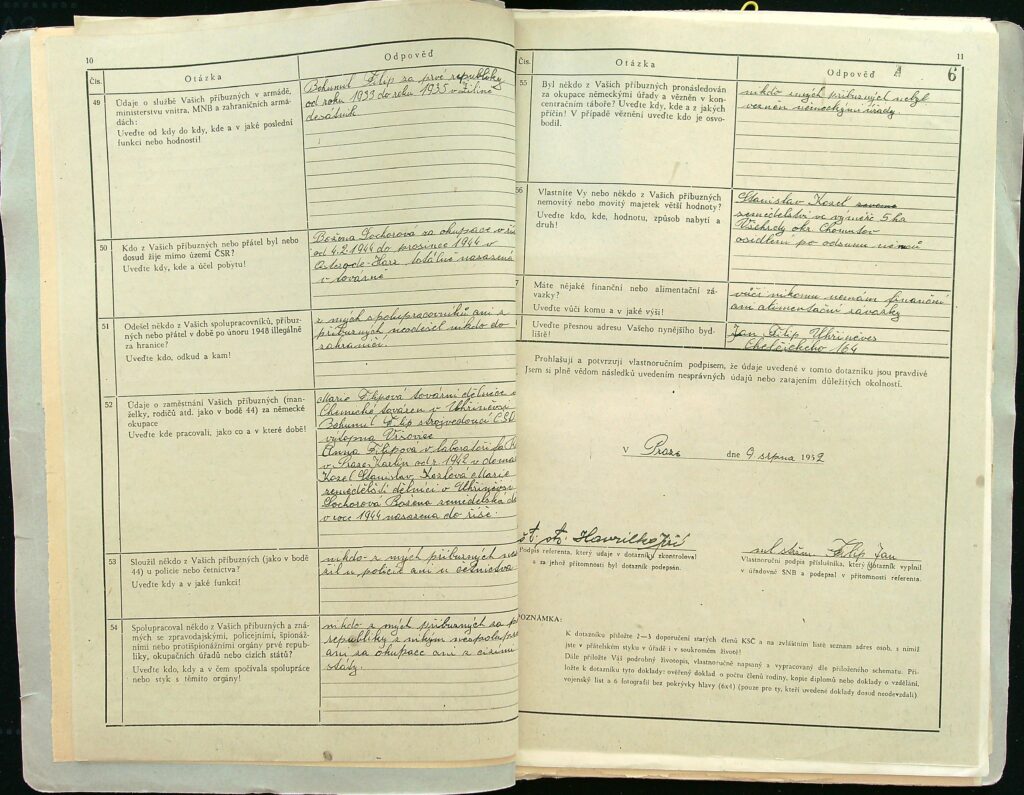 10
Čís.
Otázka
Odpověď
49
Údaje o službě Vašich příbuzných v armádě,
ministerstvu vnitra, MNB a zahraničních armá-
dách:
Uveďte od kdy do kdy, kde a v jaké poslední
funkci nebo hodnosti!
Bohumil Filip za prvé republiky
od roku 1933 do roku 1935 v Žilině
desátník
50
Kdo z Vašich příbuzných nebo přátel byl nebo
dosud žije mimo území ČSR?
Uveďte kdy, kde a účel pobytu!
Božena Sochorová za okupace v ří
od 4.2.1944 do prosince 1944 v
Osterode-Harz totálně nasazená
v továrně
51
Odešel někdo z Vašich spolupracovníků, příbuz-
ných nebo přátel v době po únoru 1948 illegálně
za hranice?
Uveďte kdo, odkud a kam!
z mých spolupracovníků ani z
příbuzných neodešel nikdo do
zahraničí.
52
Údaje o zaměstnání Vašich příbuzných (man-
želky, rodičů atd. jako v bodě 44) za německé
okupace
Uveďte kde pracovali, jako co a v které době!
Marie Filipová tovární dělnice v
Chemické továren v Uhříněvsi
Bohumil Filip strojvedoucí ČSD
výtopna Vršovice
Anna Filipová v laboratoři fa
v Praze Karlín od r. 1942 v doma
Kozel Stanislav, Kozlová Marie
zemědělští dělníci v Uhříněvsi
Sochorová Božena zemědělská dě
v roce 1944 nasazena do říše.
53
Sloužil někdo z Vašich příbuzných (jako v bodě
44) u policie nebo četnictva?
Uveďte kdy a v jaké funkci!
nikdo z mých příbuzných ne
žil u policie ani u četnictva
54
Spolupracoval někdo z Vašich příbuzných a zná-
mých se zpravodajskými, policejními, špionáž-
ními nebo protišpionážními orgány prvé repub-
liky, okupačních úřadů nebo cizích států?
Uveďte kdo, kdy a v čem spočívala spolupráce
nebo styk s těmito orgány!
nikdo z mých příbuzných za p
republiky s nikým nespolupra
ani za okupace ani z cizími
státy.
11
Čís.
Otázka
Odpověď
6
55
Byl někdo z Vašich příbuzných pronásledován
za okupace německými úřady a vězněn v kon-
centračním táboře? Uveďte kdy, kde a z jakých
příčin? V případě věznění uveďte kdo je osvo-
bodil.
nikdo mých příbuzných nebyl
vězněn německými úřady.
56
Vlastníte Vy nebo někdo z Vašich příbuzných
nemovitý nebo movitý majetek větší hodnoty?
Uveďte kdo, kde, hodnotu, způsob nabytí a
druh!
Stanislav Kozel
zemědělství ve výměře 5 ha
Všehrdy okr. Chomutov
osídlení po odsunu němců
7
Máte nějaké finanční nebo alimentační zá-
vazky?
Uveďte vůči komu a v jaké výši!
vůči nikomu nemám finanční
ani alimentační závazky
Uveďte přesnou adresu Vašeho nynějšího byd-
liště!
Jan Filip Uhříněves
Chelčického 164
Prohlašuji a potvrzuji vlastnoručním podpisem, že údaje uvedené v tomto dotazníku jsou pravdivé
Jsem si plně vědom následků uvedením nesprávných údajů nebo zatajením důležitých okolností.
V Praze dne 9 srpna 1952
št. stž. Havrilko Jiří
Podpis referenta, který údaje v dotazníku zkontroloval
a za jehož přítomnosti byl dotazník podepsán.
Filip Jan
Vlastnoruční podpis příslušníka, který dotazník vyplnil
v úřadovně SNB a podepsal v přítomnosti referenta.
POZNÁMKA:
K dotazníku přiložte 2—3 doporučení starých členů KSČ a na zvláštním listě seznam adres osob, s nimiž
jste v přátelském styku v úřadě i v soukromém životě!
Dále přiložte Váš podrobný životopis, vlastnoručně napsaný a vypracovaný dle přiloženého schematu. Při-
ložte k dotazníku tyto doklady: ověřený doklad o počtu členů rodiny, kopie diplomů nebo doklady o vzdělání,
vojenský list a 6 fotografií bez pokrývky hlavy (6x4) (pouze pro ty, kteří uvedené doklady dosud neodevzdali).